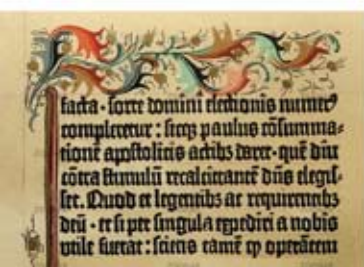 facta · sorte domini electionis numerꝰ
completetur : sicqꝫ paulus cōsumma⸗
tionē apostolicis actibꝫ daret · quē diu
cōtra stimulū recalcitrantē dn̄s elegiſ⸗
set. Quod et legentibꝫ ac requirentibꝫ
deū · etsi per singula expediri a nobis
utile fuerat : sciens tamē ꝙ operātem